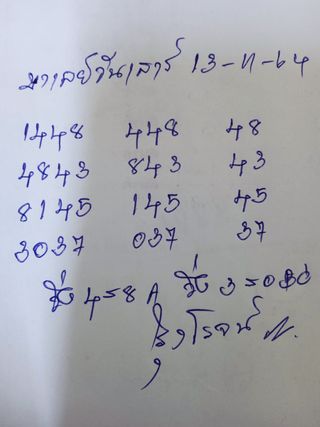 มาเลย์วันเสาร์ 13-ก-64
1448 448 48
4843 843 43
8145 145 45
3037 037 37
วิ่ง 4=8 A วิ่ง 3=0
โรจน์ N.